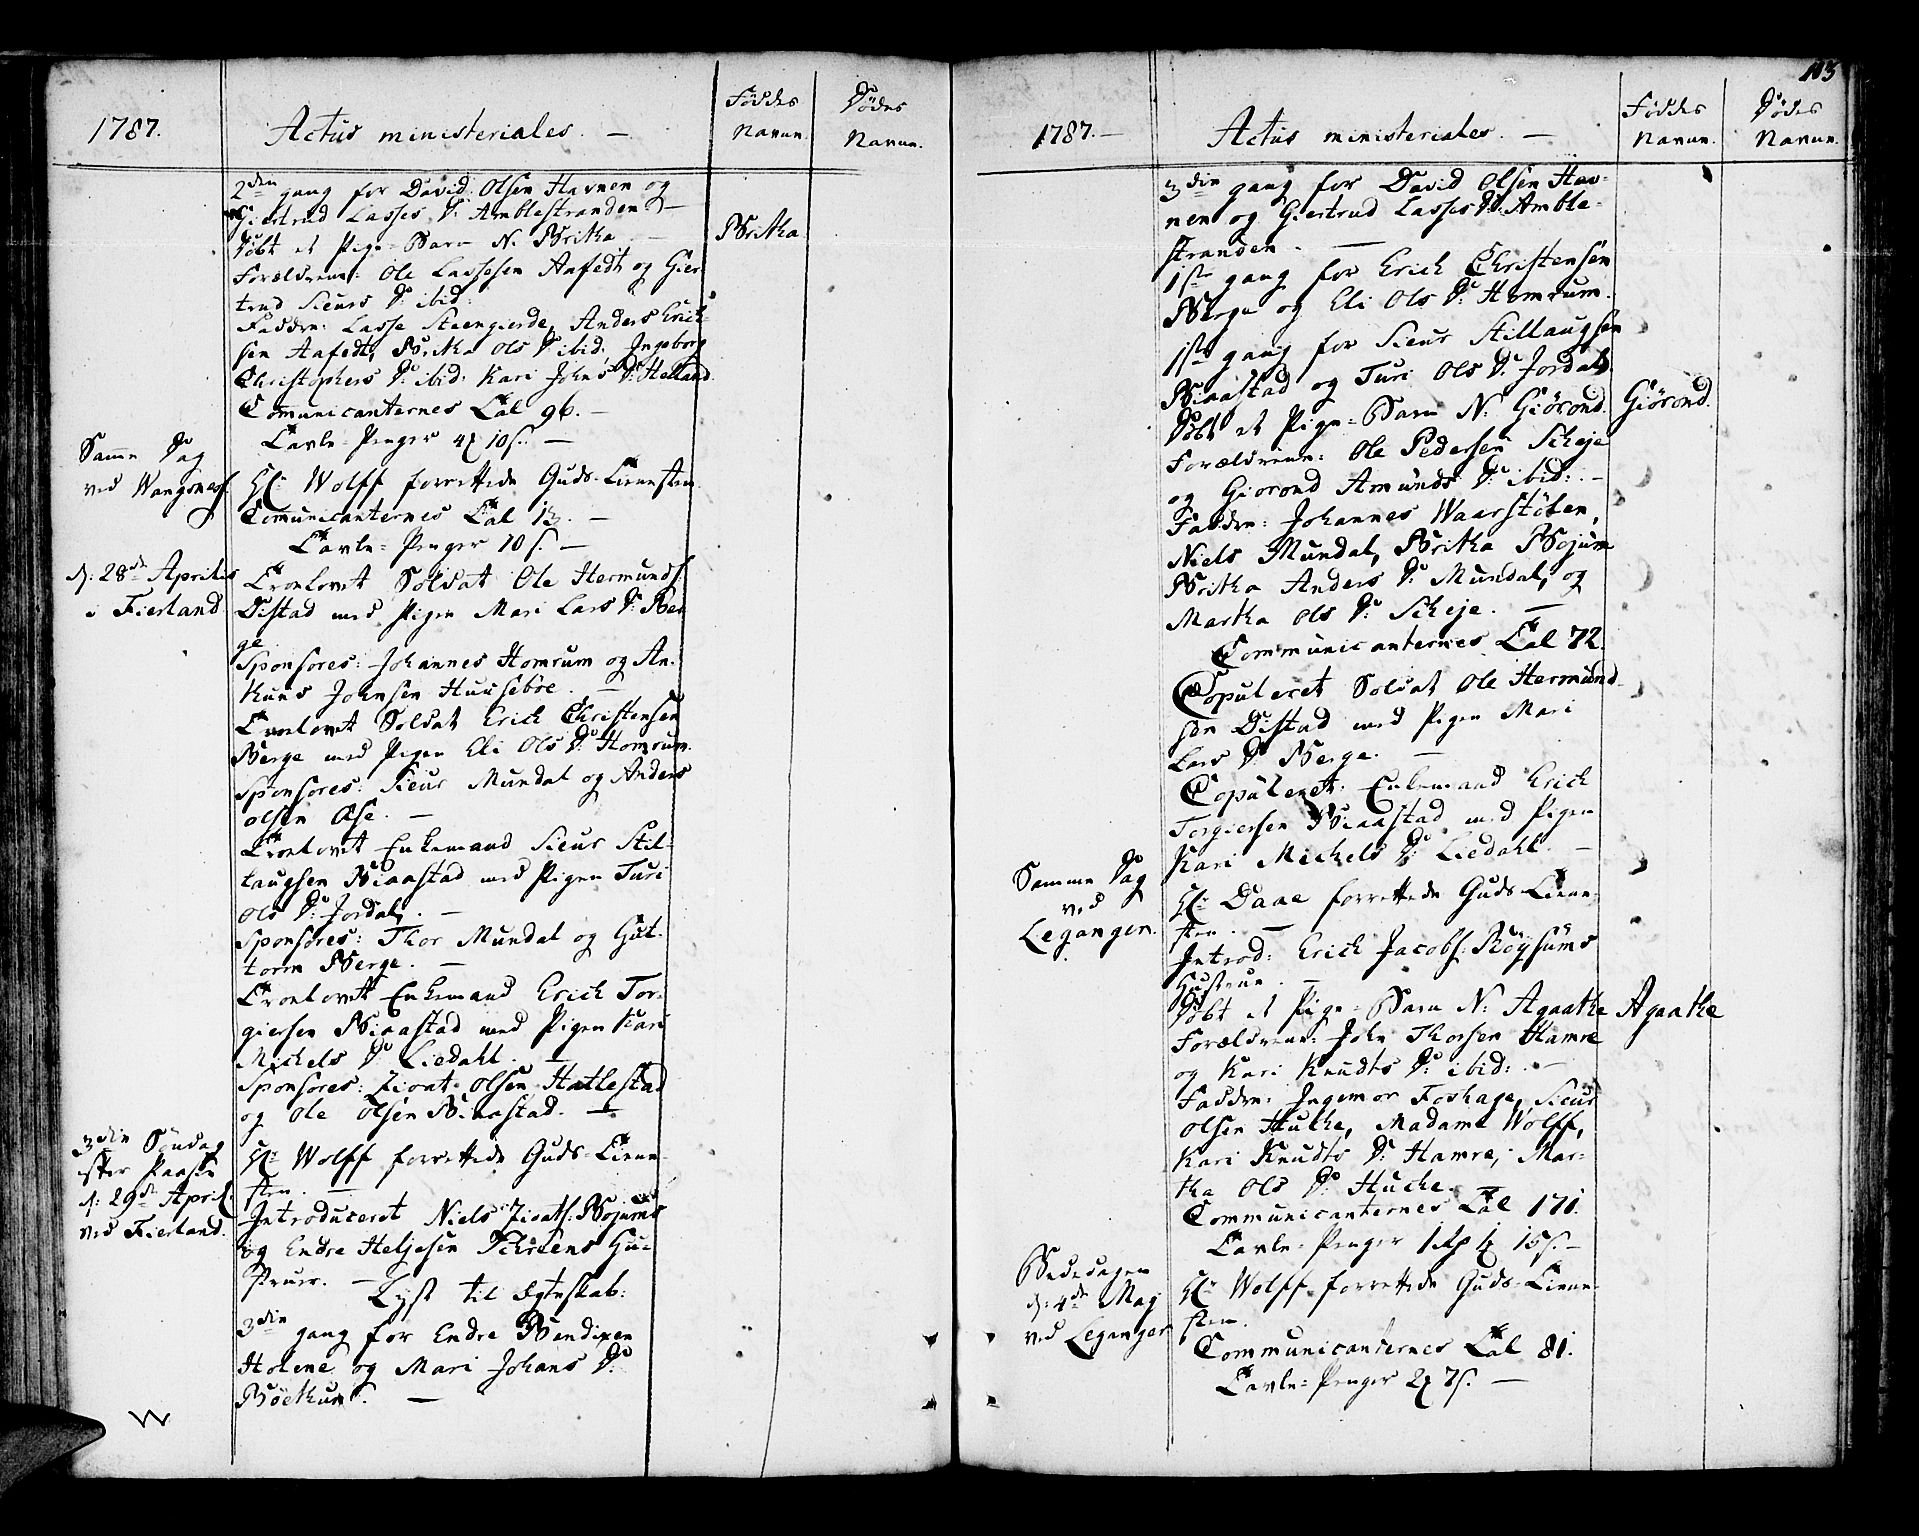 1787.
Actus ministeriales. —
Føddes Navne.
Dødes Navne.
2den gang for David Olsen Havnen og
Giertrud Lasses D: Amblestranden —
Døbt et Pige-Barn N. Britha —
Britha
Forældrene: Ole Lassesen Aafedt og Gier
trud Sieurs D: ibid:
Faddre: Lasse Steengierde, Anders Erich
sen Aafedt, Britha Ols D: ibid, Ingeborg
Christophers D: ibid: Kari Johns D: Helland
Comunicanternes Tal 96. —
Tavle-Penger 4 10 s. —
Samme Dag
ved Wangsnes.
Hr Wolff forrettede Guds-Tienesten
Comunicanternes Tal 13. —
Tavle-Penger 10 s. —
d: 28de Aprilis
i Fierland
Troelovet Soldat Ole Hermunds.
Distad med Pigen Mari Lars D: Ber
ge
Sponsores: Johannes Homrum og An-
kuns Johnsen Huusebøe. —
Troelovet Soldat Erich Christensen
Berge med Pigen Eli Ols D: Homrum.
Sponsores: Sieur Mundal og Anders
Olsen Ase. —
Troelovet Enkemand Sieur Stil-
laugsen Biaastad med Pigen Turi
Ols D: Jordal. —
Sponsores: Thor Mundal og Gut-
torm Berge. —
Troelovet Enkemand Erich Tor-
giersen Biaastad med Pigen Kari
Michels D: Liedahl. —
Sponsores: Ziout Olsen Hatlestad
og Ole Olsen Biaastad. —
3die Søndag
efter Paaske
d: 29de April.
ved Fierland.
Hr Wolff forrettede Guds-Tiene-
sten. —
Introduceret Niels Ziouts: Bojums
og Endre Heljesen Schreens Hu-
struer. —
Lyst til Egteskab:
3die gang for Endre Bendixen
Holene og Mari Johans D:
Bøethun. —
103
1787. —
Actus ministeriales. —
Føddes Navne.
Dødes Navne.
3die gang for David Olsen Hav-
nen og Giertrud Lasses D: Amble-
stranden. —
1ste gang for Erich Christensen
Berge og Eli Ols D: Homrum.
1ste gang for Sieur Stillaugsen
Biaastad og Turi Ols D: Jordal.
Døbt et Pige-Barn N: Giørond.
Giørond.
Forældrene: Ole Pedersen Scheje
og Giorond Amunds D: ibid: —
Faddre: Johannes Waarstølen,
Niels Mundal, Britha Bojum
Britha Anders D: Mundal, og
Martha Ols D: Scheje. —
Communicanternes Tal 72.
Copuleret Soldat Ole Hermund-
sen Distad med Pigen Mari
Lars D: Berge. —
Copuleret: Enkemand Erich
Torgiersen Biaastad med Pigen
Kari Michels D: Liedahl. —
Samme Dag
ved
Leganger.
Hr Daae forrettede Guds-Tiene-
sten. —
Introd: Erich Jacobs: Röysums
Hustrue. —
Døbt et Pige-Barn N: Agaathe
Agaathe
Forældrene: John Thorsen Hamre
og Kari Knudts D: ibid: —
Faddre: Ingemor Foshage, Sieur
Olsen Huthe, Madame Wolff,
Kari Knudts D: Hamre, Mar-
tha Ols D: Huche.
Communicanternes Tal 171.
Tavle-Penger 1 Rd 15 s. —
Bededagen
d: 4de Maj
ved Leganger
Hr Wolff forrettede Guds-Tiene-
sten.
Communicanternes Tal 81.
Tavle-Penger 2 7 s. —